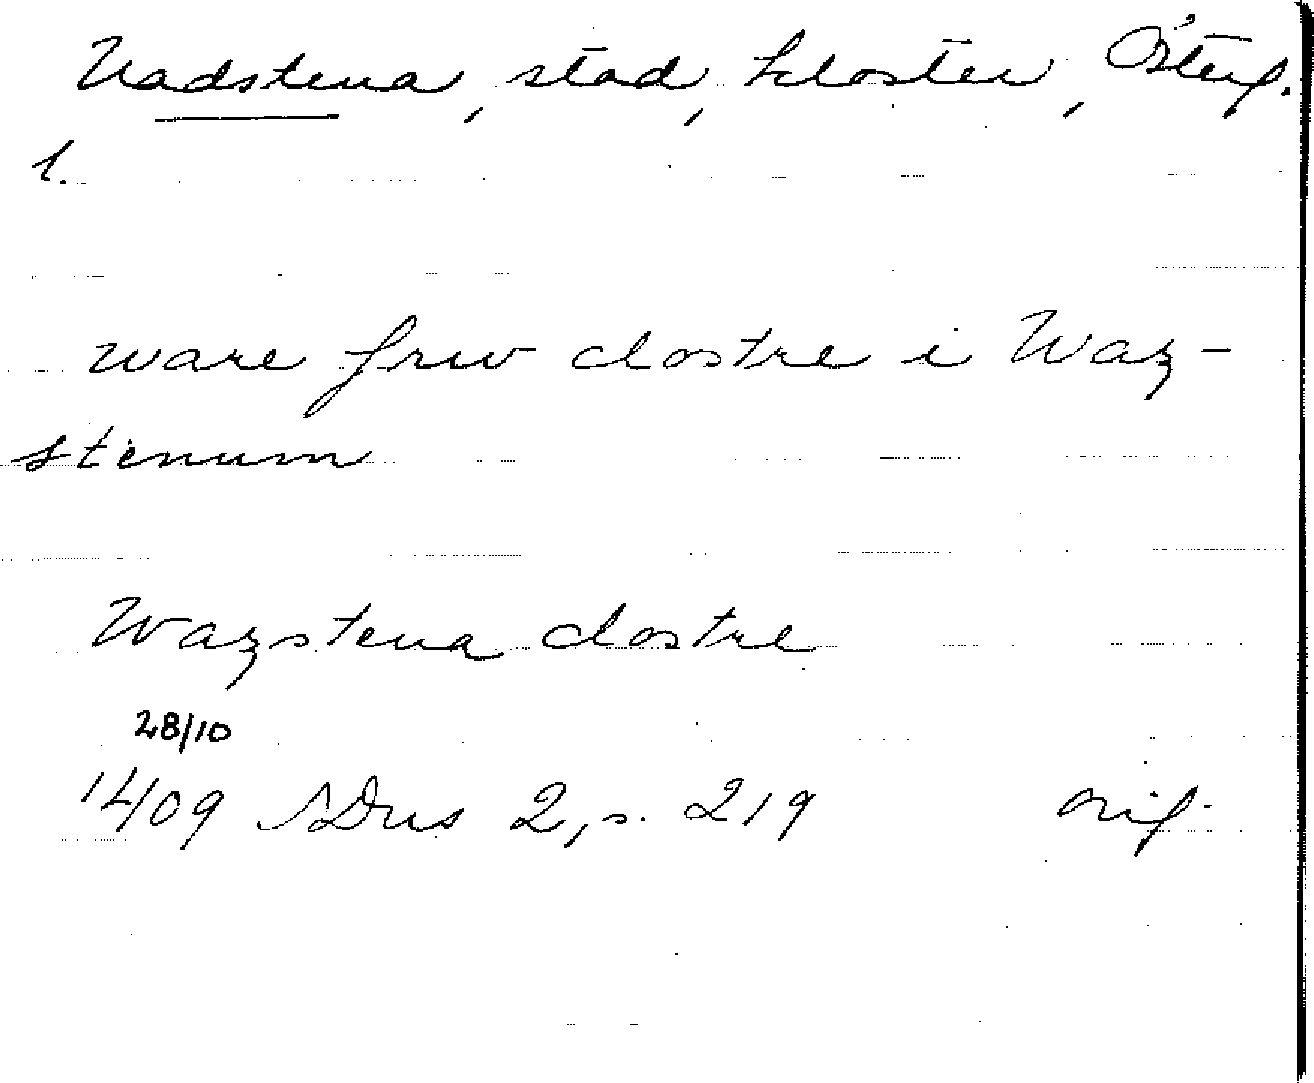 Vadstena, stad, kloster, Östg.
l.
ware frw clostre i Waz-
stenum
Wazstena clostre
28/10
1409 SDns 2, s. 219 orig.